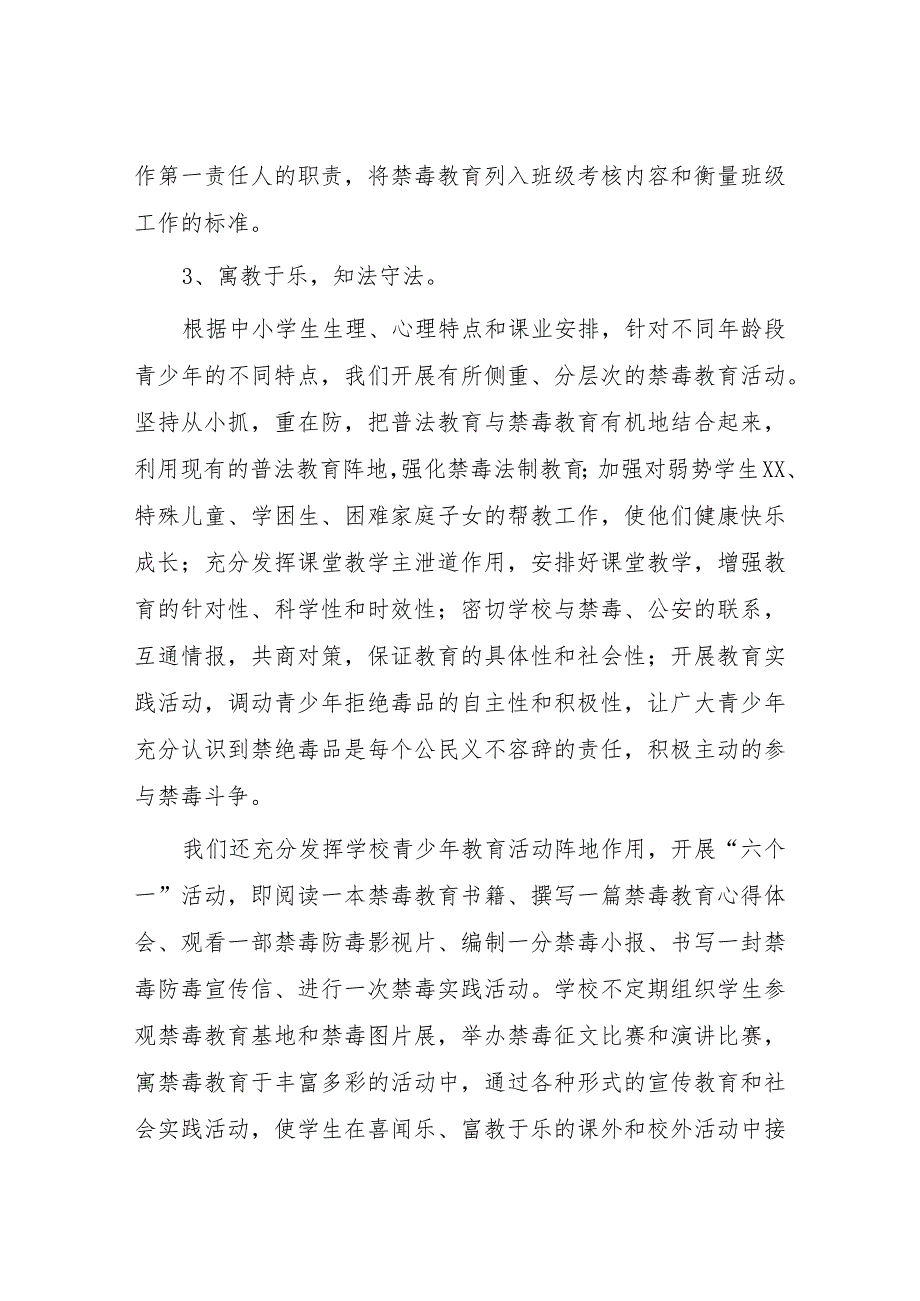 作第一责任人的职责，将禁毒教育列入班级考核内容和衡量班级
工作的标准。
3、寓教于乐，知法守法。
根据中小学生生理、心理特点和课业安排，针对不同年龄段
青少年的不同特点，我们开展有所侧重、分层次的禁毒教育活动。
坚持从小抓，重在防，把普法教育与禁毒教育有机地结合起来，
利用现有的普法教育阵地，强化禁毒法制教育；加强对弱势学生XX、
特殊儿童、学困生、困难家庭子女的帮教工作，使他们健康快乐
成长；充分发挥课堂教学主泄道作用，安排好课堂教学，增强教
育的针对性、科学性和时效性；密切学校与禁毒、公安的联系，
互通情报，共商对策，保证教育的具体性和社会性；开展教育实
践活动，调动青少年拒绝毒品的自主性和积极性，让广大青少年
充分认识到禁绝毒品是每个公民义不容辞的责任，积极主动的参
与禁毒斗争。
我们还充分发挥学校青少年教育活动阵地作用，开展“六个
一”活动，即阅读一本禁毒教育书籍、撰写一篇禁毒教育心得体
会、观看一部禁毒防毒影视片、编制一分禁毒小报、书写一封禁
毒防毒宣传信、进行一次禁毒实践活动。学校不定期组织学生参
观禁毒教育基地和禁毒图片展，举办禁毒征文比赛和演讲比赛，
寓禁毒教育于丰富多彩的活动中，通过各种形式的宣传教育和社
会实践活动，使学生在喜闻乐、富教于乐的课外和校外活动中接